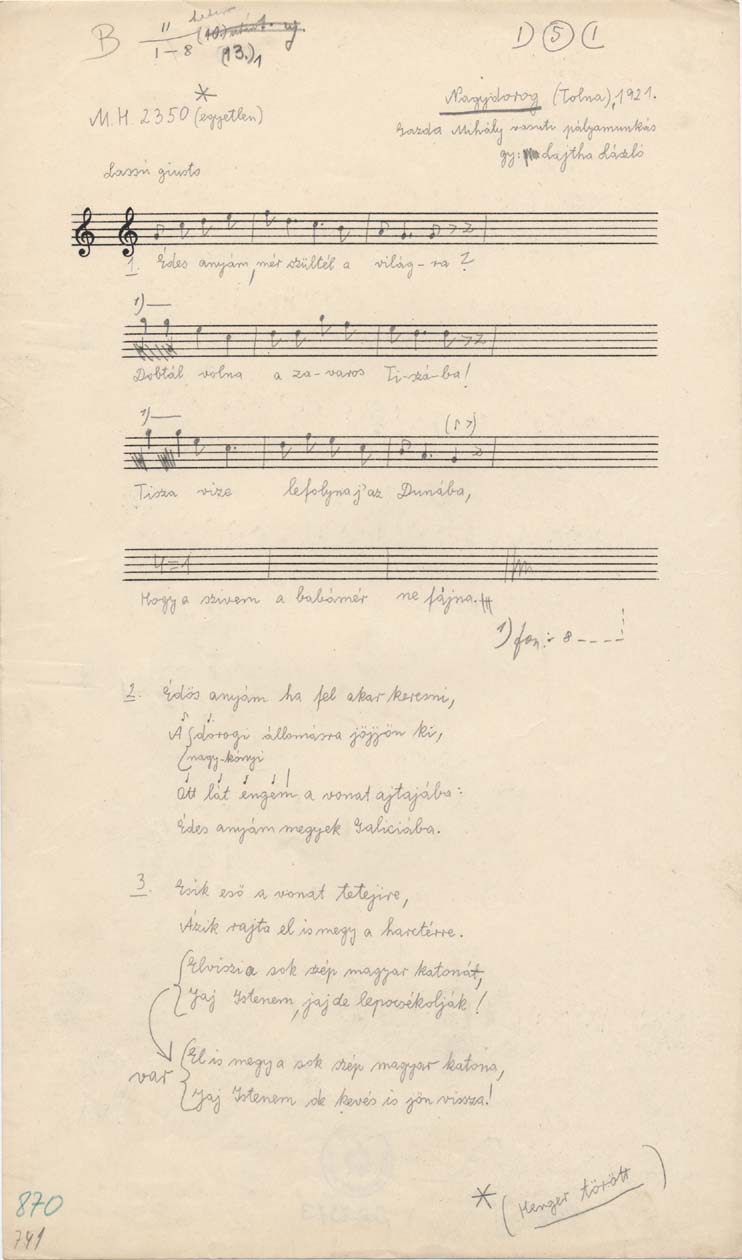 B 11 1–8
(13.)1
1) 5 (
*
M.H. 2350 (egyetlen)
Nagydorog (Tolna), 1921.
Gazda Mihály vasuti pályamunkás
gy: Lajtha László
Lassú giusto
1. Édes anyám, mér szültél a világ-ra?
1)
Dobtál volna a za-varos Ti-szá-ba!
1)
Tisza vize lefolyna j'az Dunába,
4=1
Hogy a szivem a babámér ne fájna.
1) fon.: 8
2. Édös anyám ha fel akar keresni,
A dorogi állomásra jöjjön ki,
nagy-kónyi
Ott lát engem a vonat ajtajába:
Édes anyám megyek Galiciába.
3. Esik eső a vonat tetejire,
Ázik rajta el is megy a harctérre.
Elviszi a sok szép magyar katonát,
Jaj Istenem, jaj de lepocsékolják!
var El is megy a sok szép magyar katona,
Jaj Istenem de kevés is jön vissza!
* (Henger törött)
870
741